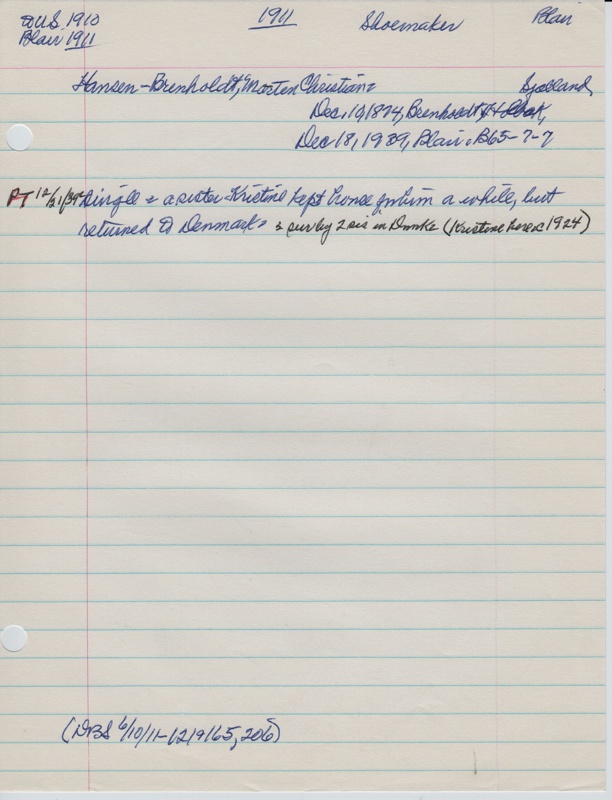 to U.S. 1910 1911 Shoemaker Blair
Blair 1911
Hansen-Brenholdt, Morten Christian= Sjælland,
Dec. 19, 1874, Brenholdt, Holbæk,
Dec 18, 1939, Blair. B65-7-7
PT 12/21/39 Single = a sister Kristine kept house for him a while, but
returned to Denmark = sur by 2 sis in Dnmk (Kristine here 1924)
(DBS 6/10/11- 165, 206)